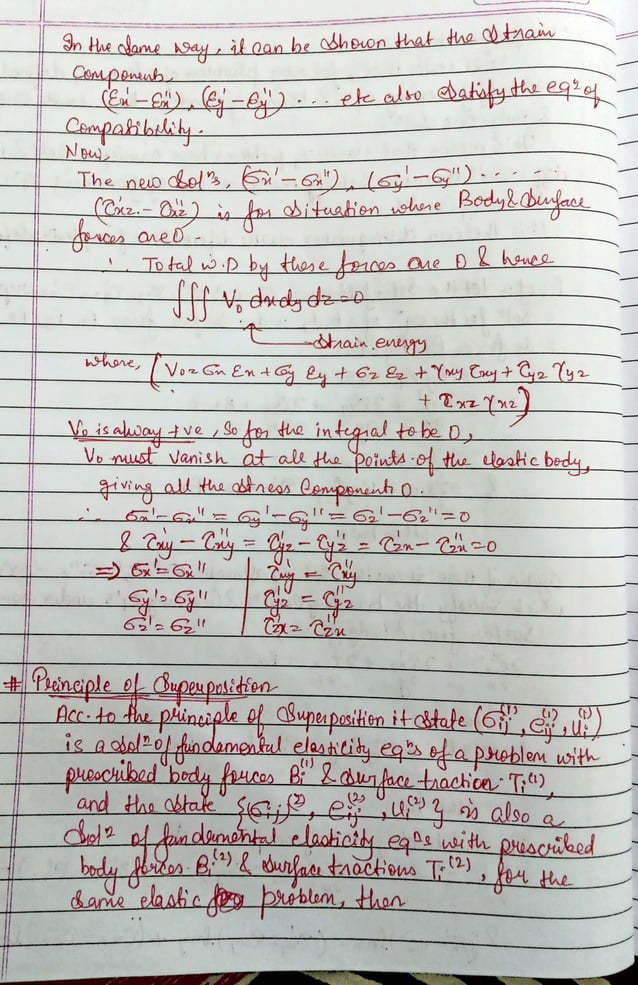 In the same way, it can be shown that the strain
components,
(εx' − εx''), (εy' − εy'') ... etc also satisfy the eqⁿ of
Compatibility.
Now,
The new solⁿs, (σx' − σx''), (σy' − σy'') ......
(τxz' − τxz'') is for situation where Body & Surface
forces are 0.
∴ Total W.D by these forces are 0 & hence
∭ V₀ dx dy dz = 0
Strain energy
where, (V₀ = σx εx + σy εy + σz εz + γxy τxy + τyz γyz
+ τxz γxz)
V₀ is alway +ve, so for the integral to be 0,
V₀ must vanish at all the points of the elastic body,
giving all the stress components 0.
∴ σx' − σx'' = σy' − σy'' = σz' − σz'' = 0
& τxy' − τxy'' = τyz' − τyz'' = τzx' − τzx'' = 0
⇒ σx' = σx'' | τxy' = τxy''
σy' = σy'' | τyz' = τyz''
σz' = σz'' | τzx' = τzx''
# Principle of Superposition
Acc. to the principle of Superposition if state (σij⁽¹⁾, eij⁽¹⁾, ui⁽¹⁾)
is a solⁿ of fundamental elasticity eqⁿs of a problem with
prescribed body forces Bi⁽¹⁾ & surface traction Ti⁽¹⁾,
and the state {σij⁽²⁾, eij⁽²⁾, ui⁽²⁾} is also a
Solⁿ of fundamental elasticity eqⁿs with prescribed
body forces Bi⁽²⁾ & surface tractions Ti⁽²⁾, for the
same elastic problem, then